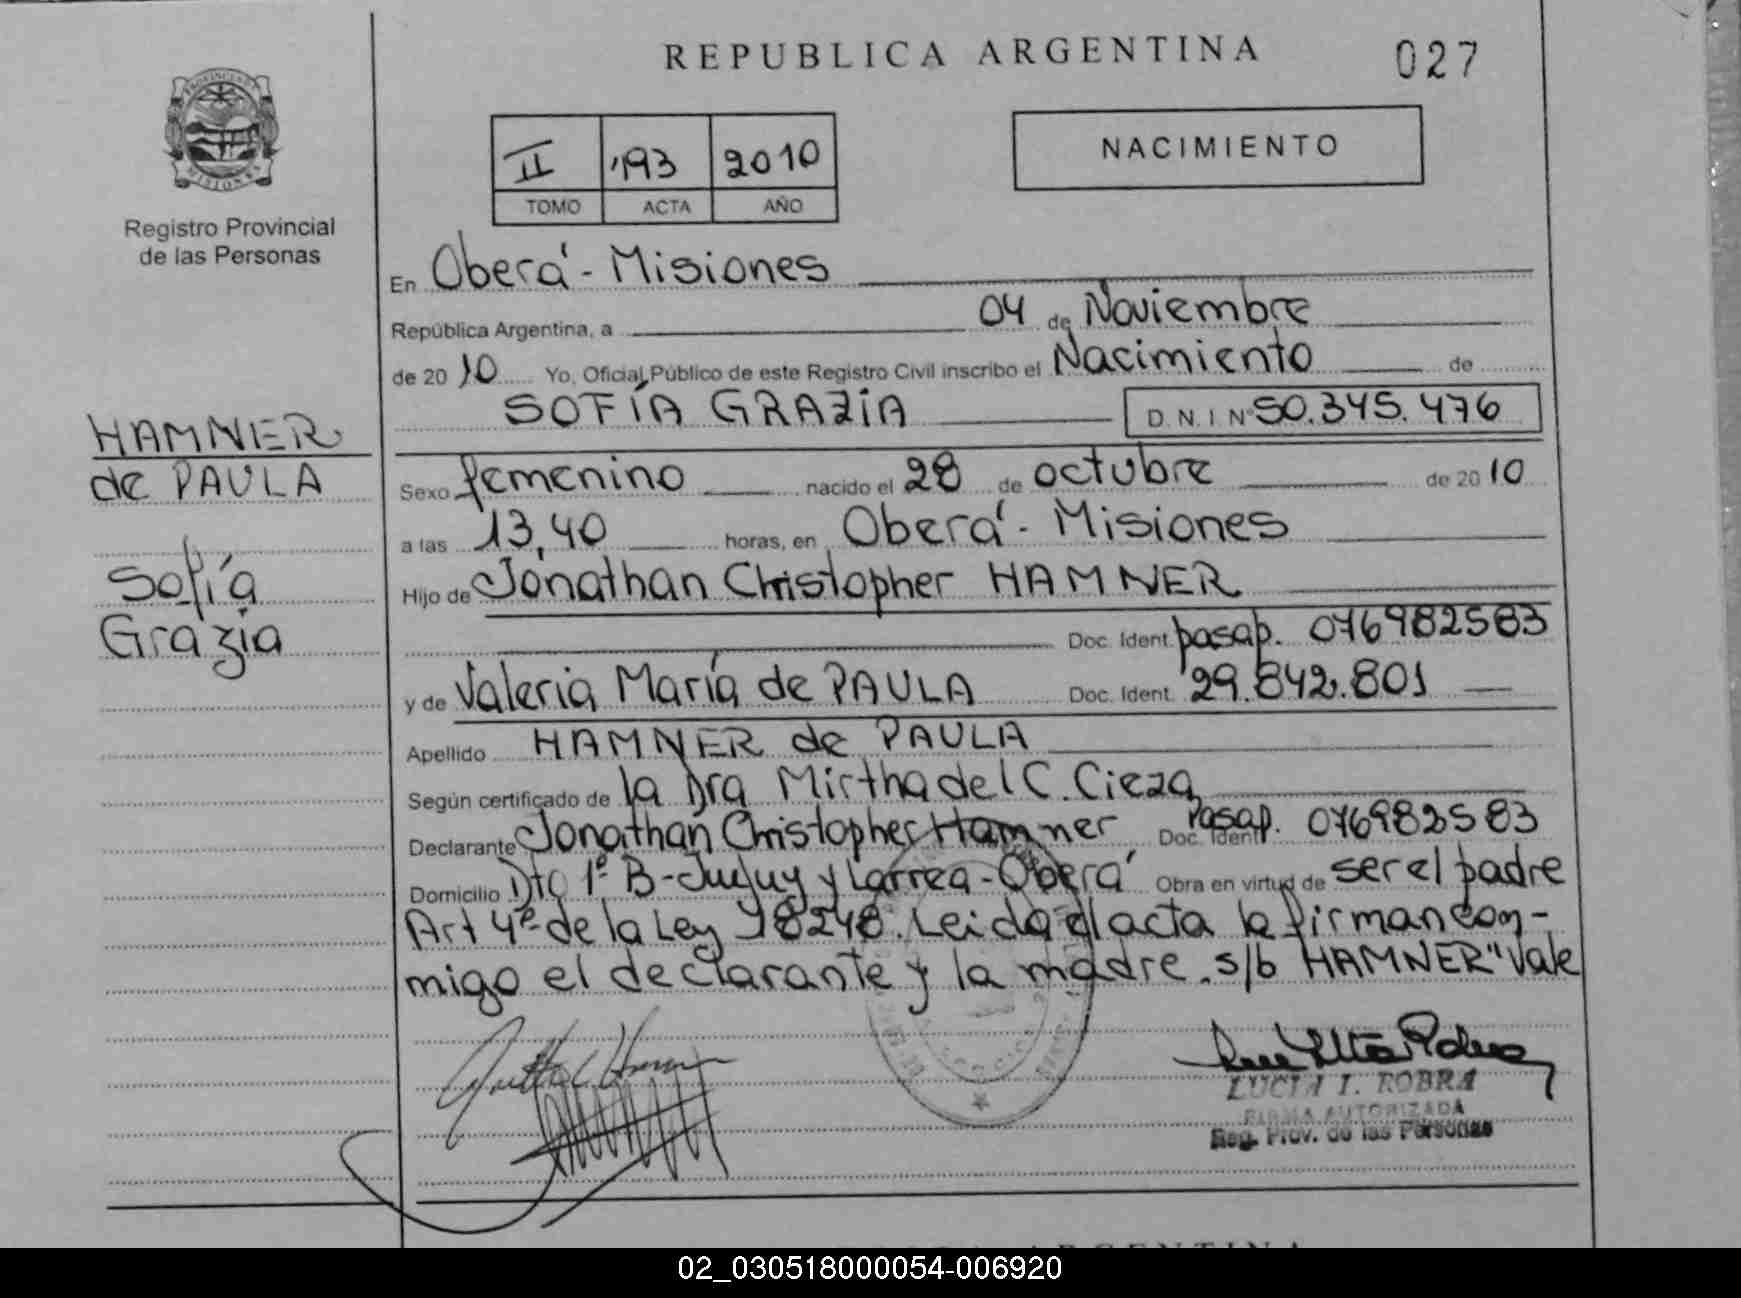 REPUBLICA ARGENTINA
027
PROVINCIA DE MISIONES
Registro Provincial
de las Personas
II 193 2010
TOMO ACTA AÑO
NACIMIENTO
En Oberá - Misiones
República Argentina, a 04 de Noviembre
de 2010 Yo, Oficial Público de este Registro Civil inscribo el Nacimiento de
SOFÍA GRAZIA D.N.I Nº 50.345.476
HAMNER
de PAULA
Sofía
Grazia
Sexo femenino nacido el 28 de octubre de 2010
a las 13,40 horas, en Oberá - Misiones
Hijo de Jonathan Christopher HAMNER
Doc. Ident. pasap. 076982583
y de Valeria María de PAULA Doc. Ident. 29.842.801
Apellido HAMNER de PAULA
Según certificado de la Dra Mirtha del C. Cieza
Declarante Jonathan Christopher Hamner Doc. Ident. Pasap. 076982583
Domicilio Dto 1º B - Jujuy y Larrea - Oberá Obra en virtud de ser el padre
Art 4º de la Ley 18248. Leida el acta la firman con-
migo el declarante y la madre. s/b HAMNER" Vale
LUCIA I. ROBRA
FIRMA AUTORIZADA
Reg. Prov. de las Personas
ARGENTINA
02_030518000054-006920